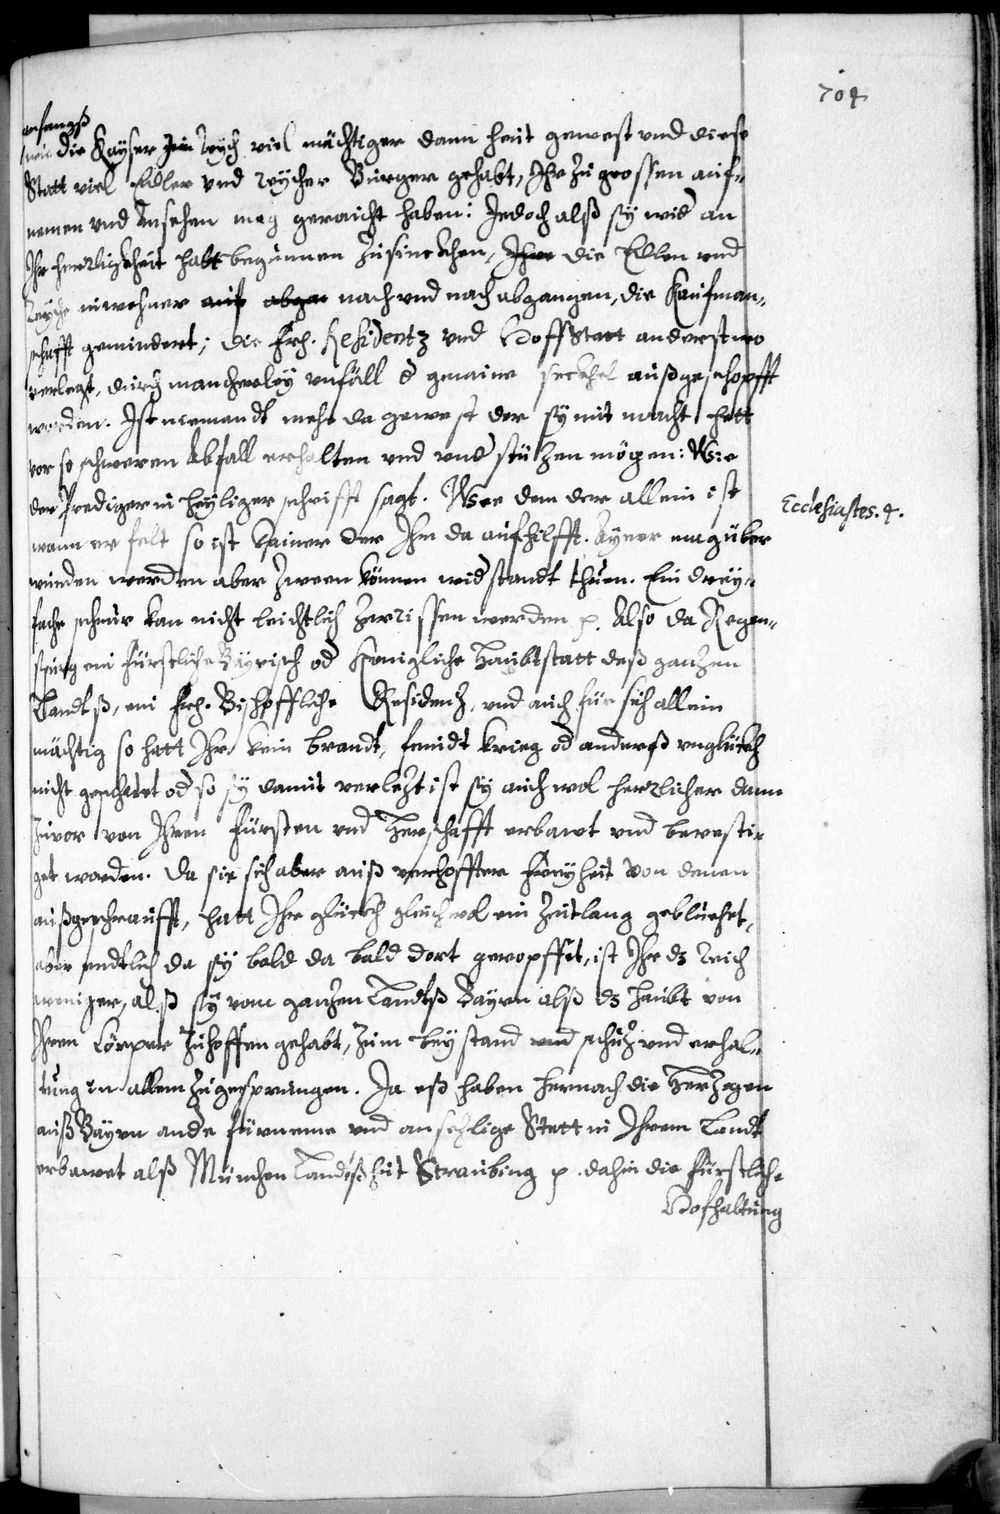 704
anfangß
wie die Kayser im Reych viel mächtiger dann heut gewest und diese
Statt viel Edler und reycher Burger gehabt, Ihr zu grossen auf-
nemen und Ansehen mag geraicht haben: Jedoch alß sy wid an
Ihr herrligkheit habt begunnen zusinckhen, Ihre die Edlen und
Reyche inwohner auß abgan nach und nach abgangen, die Kaufman-
schafft gemindert; die frh. Residentz und Hoffstatt anderstwo
verlegt, durch mancherley unfäll d gemaine seckhel außgeschopfft
worden. Ist niemandt mehr da gewest der sy mit macht hett
vor so schweren Abfall erhalten und understützen mögen: Wie
der Prediger in heyliger schrifft sagt. Wee dem der allein ist
Ecclesiastes. 4.
wann er felt so ist kainer der Ihm da aufhilfft. Ayner mag über
wunden werden aber zween können widstandt thuen. Ein drey-
fache schnur kan nicht leichtlich zerrissen werden p. Also da Regen-
spurg ein fürstliche Bayrisch od Königliche Haubtstatt deß ganzen
Landtß, ein frh. Bischoffliche Residenz, und auch für sich allein
mächtig so hatt Ihr kein brandt, feindt krieg od anderß unglückh
nicht geschadet od so sy damit verlezt ist sy auch wol herrlicher dann
zuvor von Ihren Fürsten und Herschafft erbawt und bevesti-
get worden. Da sie sich aber auß verhoffter freyheit von denen
außgeschraufft, hatt Ihr glückh gleichwol ein zeitlang geblüehet,
aber endtlich da sy bald da bald dort geropfft, ist Ihr dz Reich
weniger, alß sy vom ganzen Landtß Bayrn alß dz haubt von
Ihren Cörper zuhoffen gehabt, zum beystand und schuz und erhal-
tung in allem zugesprungen. Ja eß haben hernach die Herzogen
auß Bayrn ande fürneme und ansehlige Stett in Ihrem Landt
erbawet alß München Landtßhut Straubing p. dahin die fürstliche
Hofhaltung